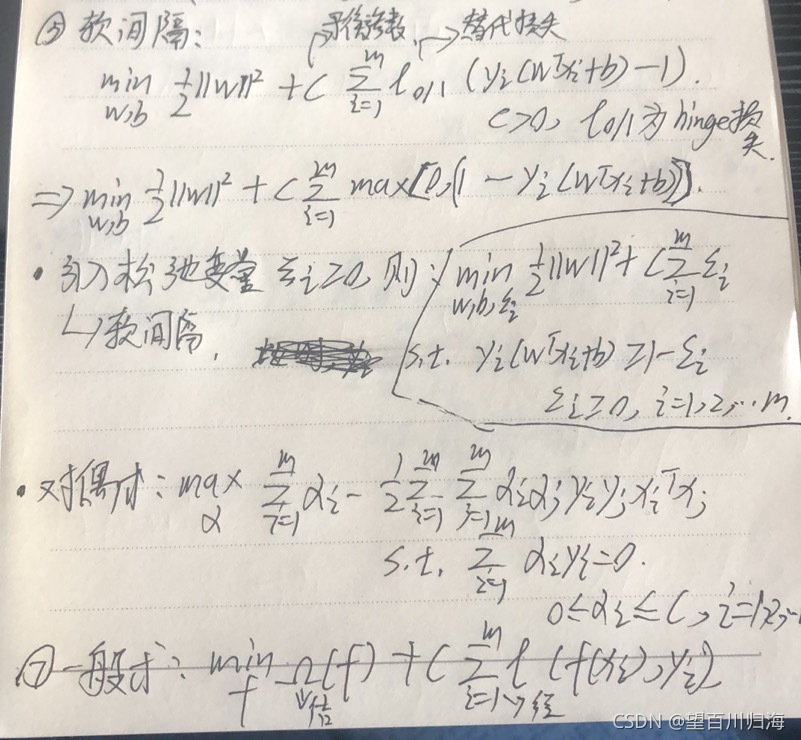 ⑤ 软间隔: 平衡参数 替代损失
min w,b ½||w||² + C Σ_{i=1}^{m} l_{0/1} (y_i(w^T x_i+b) - 1).
C>0, l_{0/1} 为 hinge损
失.
=> min w,b ½||w||² + C Σ_{i=1}^{m} max[0,(1 - y_i(w^T x_i+b))].
• 引入松弛变量 ξ_i≥0, 则: min w,b,ξ_i ½||w||² + C Σ_{i=1}^{m} ξ_i
↳ 软间隔. s.t. y_i(w^T x_i+b) ≥1-ξ_i
ξ_i≥0, i=1,2,...m.
• 对偶式: max α Σ_{i=1}^{m} α_i - ½ Σ_{i=1}^{m} Σ_{j=1}^{m} α_i α_j y_i y_j x_i^T x_j
s.t. Σ_{i=1}^{m} α_i y_i=0.
0≤α_i≤C, i=1,2,..
⑦ 一般式: min f Ω(f) + C Σ_{i=1}^{m} l (f(x_i), y_i)
结 经
CSDN @望百川归海